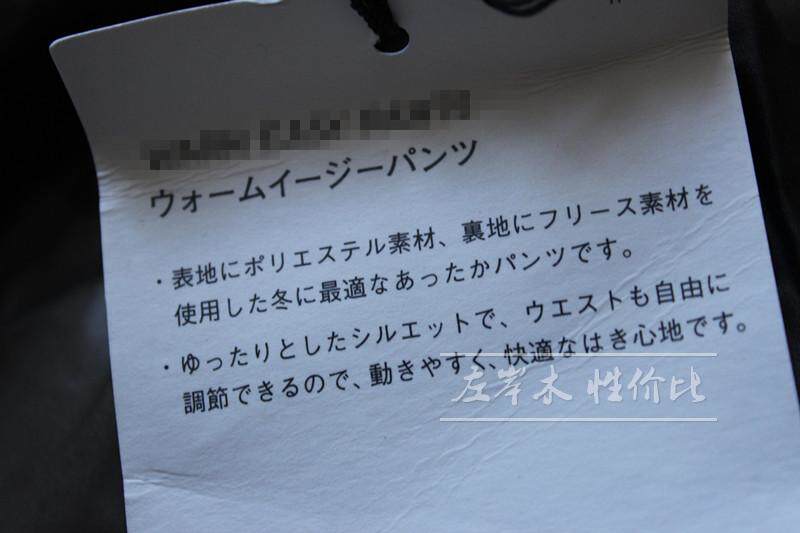 ウォームイージーパンツ
・表地にポリエステル素材、裏地にフリース素材を
使用した冬に最適なあったかパンツです。
・ゆったりとしたシルエットで、ウエストも自由に
調節できるので、動きやすく、快適なはき心地です。
左岸木 性价比